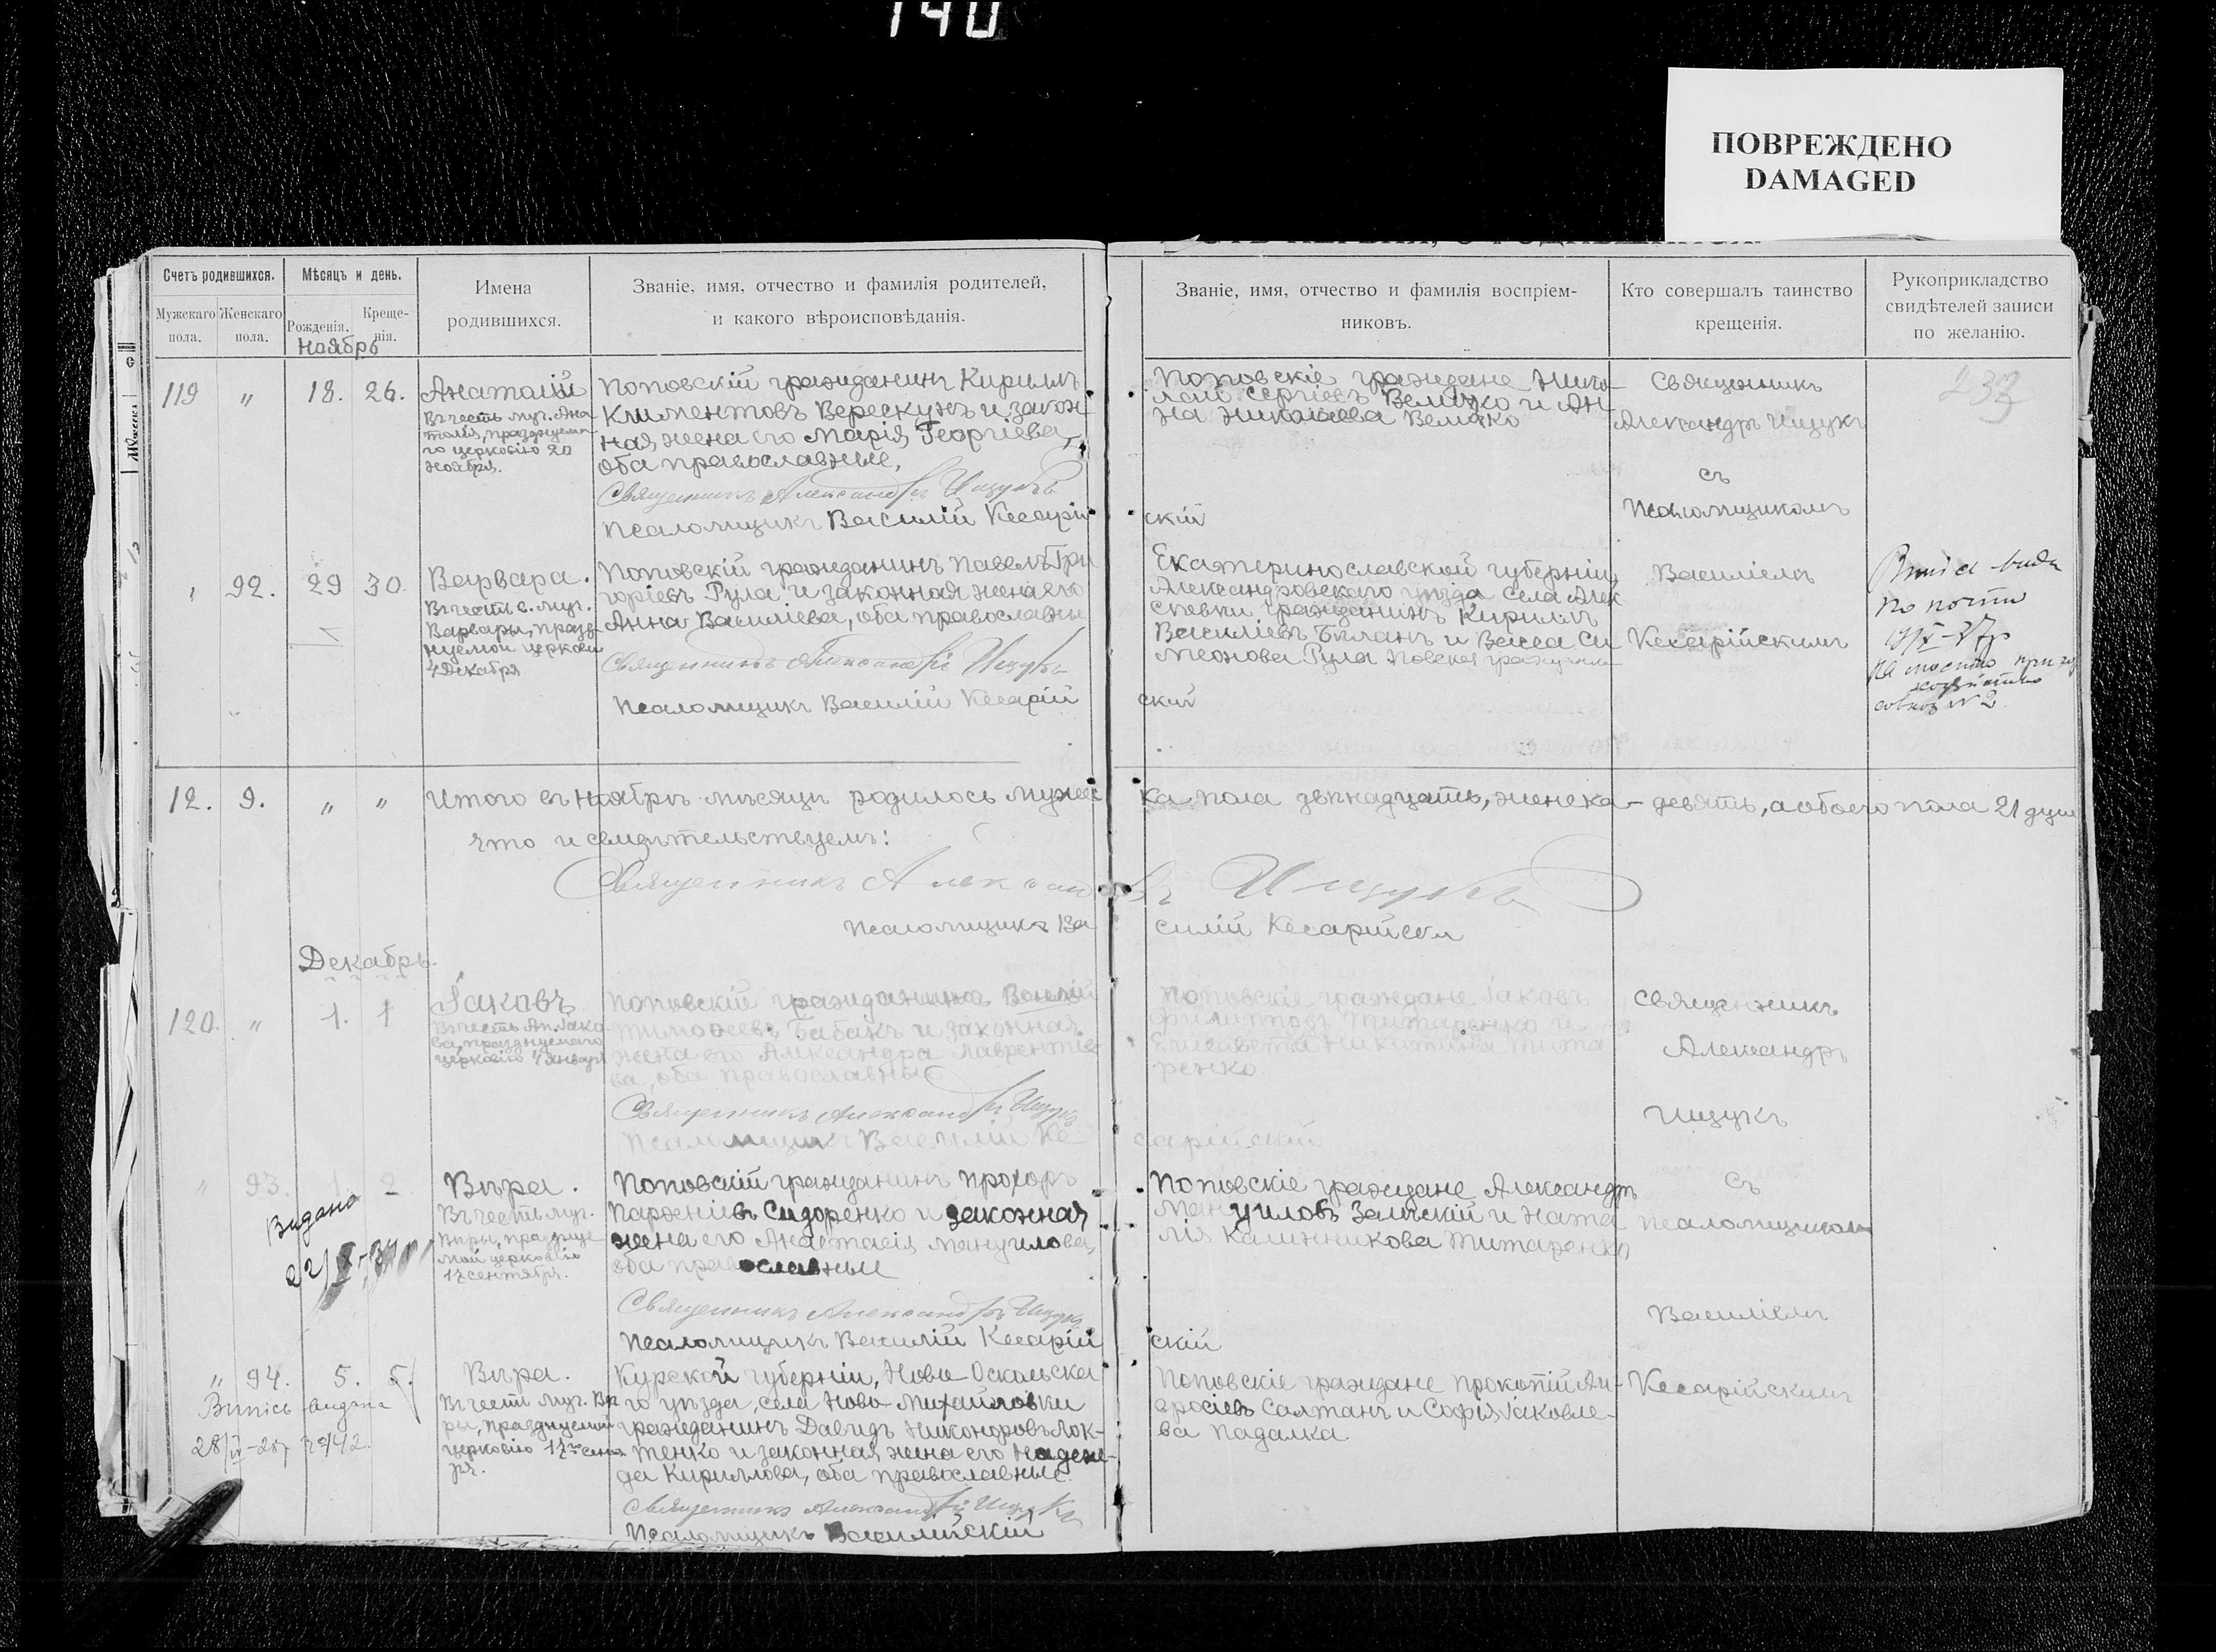 140
ПОВРЕЖДЕНО
DAMAGED
Счетъ родившихся.
Мужскаго пола.
Женскаго пола.
Мѣсяцъ и день.
Рожденія.
Крещенія.
Имена
родившихся.
Званіе, имя, отчество и фамилія родителей,
и какого вѣроисповѣданія.
Званіе, имя, отчество и фамилія воспріем-
никовъ.
Кто совершалъ таинство
крещенія.
Рукоприкладство
свидѣтелей записи
по желанію.
Ноябрь
119 " 18. 26.
Анатолій
Въ честь муч. Ана-
толія, празднуема-
го церковію 20
Ноября.
Поповскій гражданинъ Кириллъ
Климентовъ Верескунъ и закон-
ная жена его Марія Георгіева,
оба православные,
Священникъ Александръ Ищукъ
Псаломщикъ Василій Кесарій-
скій
Поповскіе граждане Нико-
лай Сергіевъ Величко и Ан-
на Николаева Величко
Священникъ
Александръ Ищукъ
съ
Псаломщикомъ
" 92. 29 30.
Варвара.
Въ честь с. муч.
Варвары, празд-
нуемой церковію
4 Декабря
Поповскій гражданинъ Павелъ Гри
горіевъ Гула и законная жена его
Анна Василіева, оба православны
Священникъ Александръ Ищукъ
Псаломщикъ Василій Кесарій
скій
Екатеринославской губерніи,
Александровскаго уѣзда села Алек
сѣевки гражданинъ Кириллъ
Василіевъ Бѣланъ и Васса Си
меонова Гула
Василіемъ
Кесарійскимъ
по почти
№ 2
12. 9. " "
Итого въ Ноябрѣ мѣсяцѣ родилось мужес
ка пола двѣнадцать, женска - девять, а обоего пола 21 душ
что и свидѣтельствуемъ:
Священникъ Александръ Ищукъ
Псаломщикъ Ва
силій Кесарійскі
Декабрь.
120. " 1. 1
Іаковъ
Въ честь Ап. Іако
ва, празднуемаго
церковію 4 Январ
Поповскій гражданинъ Василій
Тимоѳеевъ Бабакъ и законная
жена его Александра Лаврентіе
ва, оба православные
Священникъ Александръ Ищукъ
Псаломщикъ Василій Ке
сарійскій
Поповскіе граждане Іаковъ
Филипповъ Титаренко и
Елисавета Никитина Тита
ренко
Священникъ
Александръ
Ищукъ
" 93. 1. 2.
Видано
Вѣра.
Въ честь муч.
Вѣры, праздну
мой церковію
17 сентября.
Поповскій гражданинъ Прохоръ
Парѳеніевъ Сидоренко и законная
жена его Анастасія Мануилова,
оба православные
Священникъ Александръ Ищукъ
Псаломщикъ Василій Кесарій
скій
Поповскіе граждане Александръ
Мануиловъ Заліскій и Ната
лія Калинникова Титаренко
съ
псаломщикомъ
Василіемъ
" 94. 5. 5.
видана
Вѣра.
Въ честь муч. Вѣ
ры, празднуемой
церковію 17 сент
ря.
Курской губерніи, Ново-Оскольска
го уѣзда, села Ново-Михайловки
гражданинъ Давидъ Никоноровъ Лок-
тенко и законная жена его Надеж-
да Кириллова, оба православные.
Священникъ Александръ Ищукъ
Псаломщикъ
Поповскіе граждане Прокопій Ам-
вросіевъ Салтанъ и Софія Іаковле-
ва Падалка
Кесарійскимъ